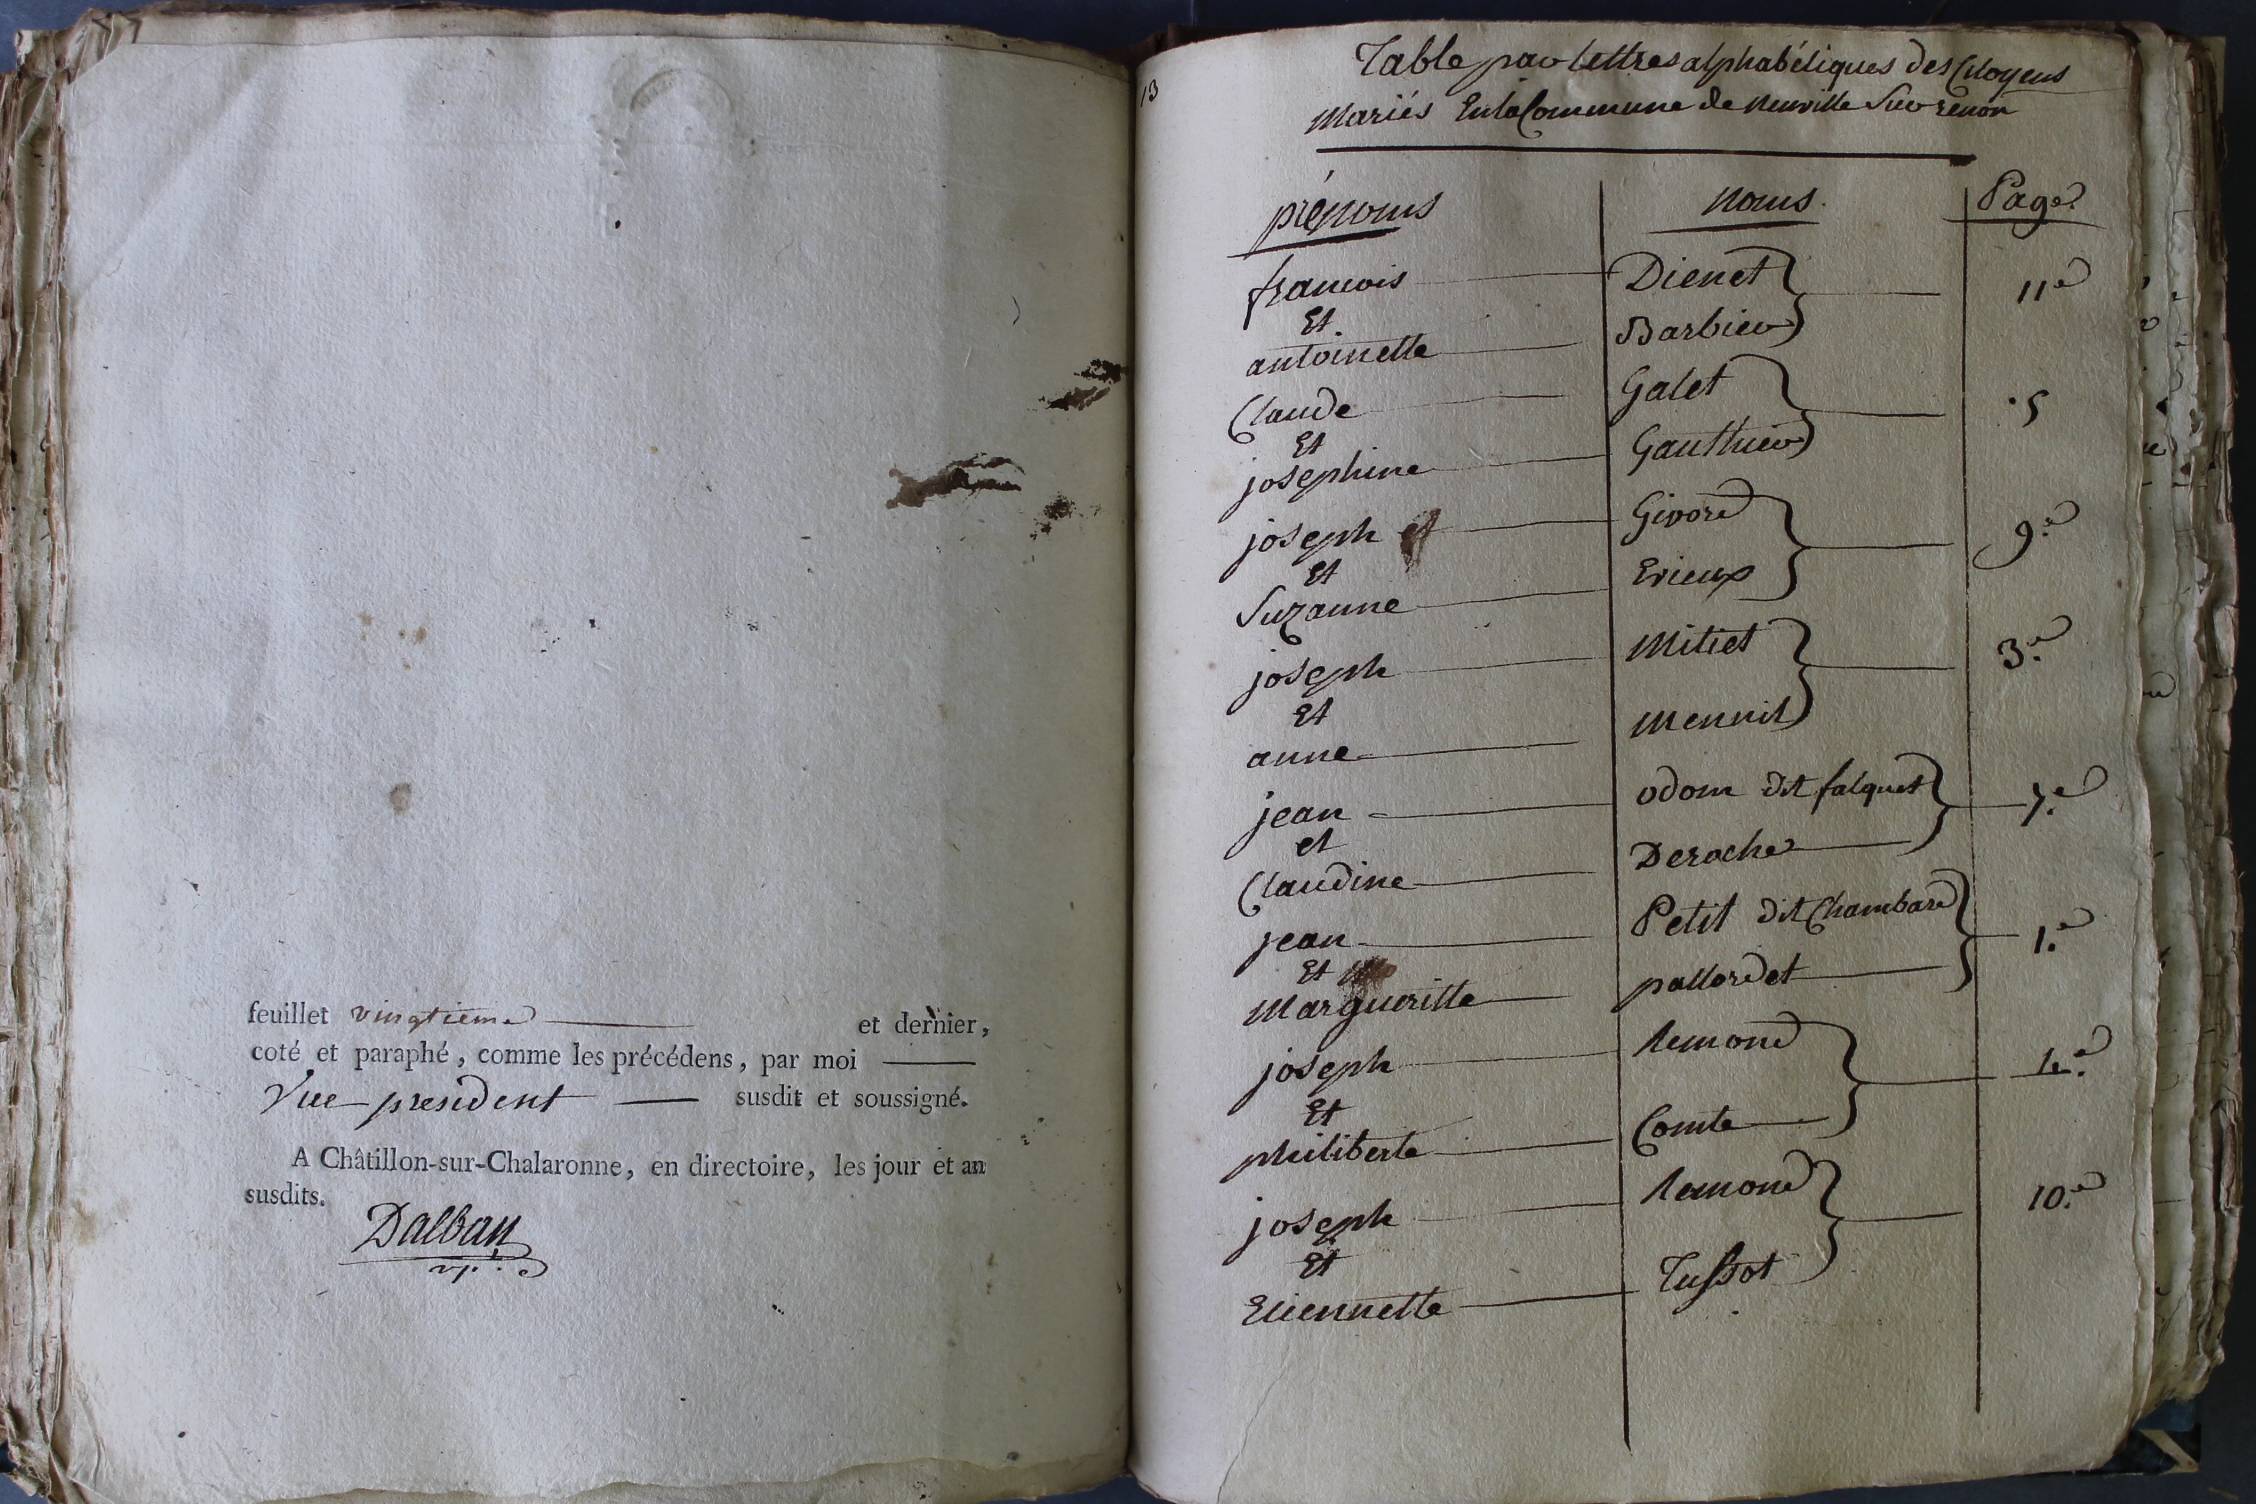 feuillet vingtieme et dernier,
coté et paraphé, comme les précédens, par moi
Vice president susdit et soussigné.
A Châtillon-sur-Chalaronne, en directoire, les jour et an
susdits.
Dalban
v.p.
13
Table par lettres alphabétiques des Citoyens
Mariés En la Commune de neuville Sur renon
prénoms noms Page
francois Dienet 11e
Et
antoinette Barbier
Claude Galet 5
Et
josephine Gauthier
joseph et Givord 9e
Et
Suzanne Erieux
joseph Mitiet 3e
Et
anne
jean odom dit falquet 7e
et
Claudine Deroche
jean Petit dit Chambard 1e
Et
Margueritte
joseph Remond 4e
Et
philiberte Comte
joseph Remond 10e
Et
Etiennette Tussot